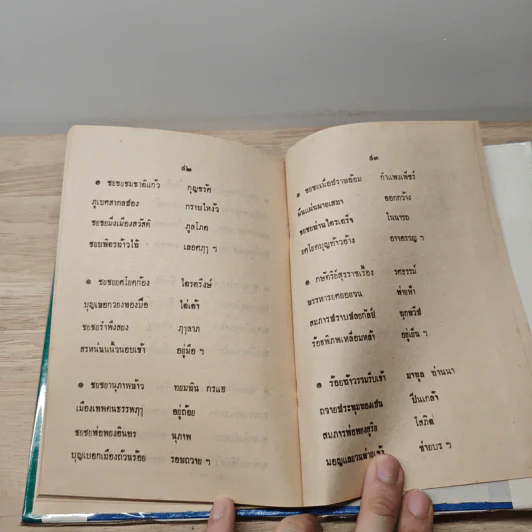 ๕๒
๏ ชยชยชมชาติแก้ว กุญชรัศ
ภูเบศสากลช่อง กราบไหงัว
ชยชยมึงเมืองสวัสดิ์ ภูลโภค
ชยบพิตรท้าวไธ้ เลอศฦๅ ฯ
๏ ชยชยยศโยคก้อง ไตรตรึงษ์
ไต่เต้า
ชยชรำพึงสยง ฦๅลาภ
อยู่มือ ฯ
๏ ชยชยานุภาพท้าว ทยมฝืน กรแฮ
เมืองเทพคนธรรพฦๅ อยู่ถ้อย
ชยชยพ่อพยงอินทร นุภาพ
บุญเบอกเมืองถ้วนร้อย รอบถวาย ฯ
๕๓
๏ ชยชยเมื่อปราบอ้อม กำแพงเพ็ชร์
ออกกว้าง
ชยชยผ่านไตรเตร็จ ไพนารถ
ยศโยคบุญท้าวอ้าง อาจตรรญ ฯ
๏ กษัตริย์สุรราชเรื้อง รศธรรม์
พรรหารยศยอยอน พ่ายฟ้า
สมภารปราบปลยกัลป์ ทุกทวีป
ร้อยพิภพเหลื่อมหล้า อยู่เย็น ฯ
๏ ร้อยท้าวรวมรีบเข้า มาทูล ท่านนา
ถวายประทุมทองเปน ปิ่นเกล้า
สมภารพ่อพยงสูริย โสภิต
มอญแลยวนพ่ายเข้า ข่ายบร ฯ